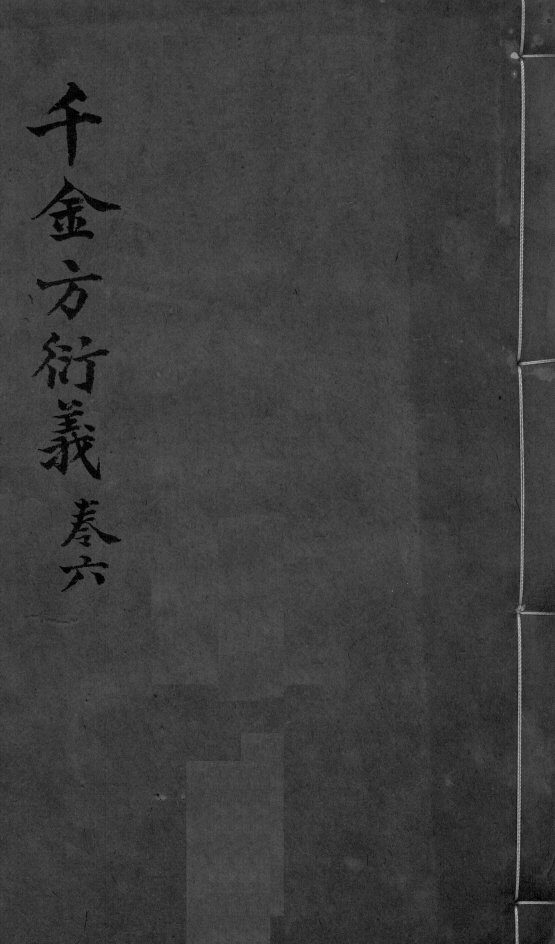 千金方衍義 卷六